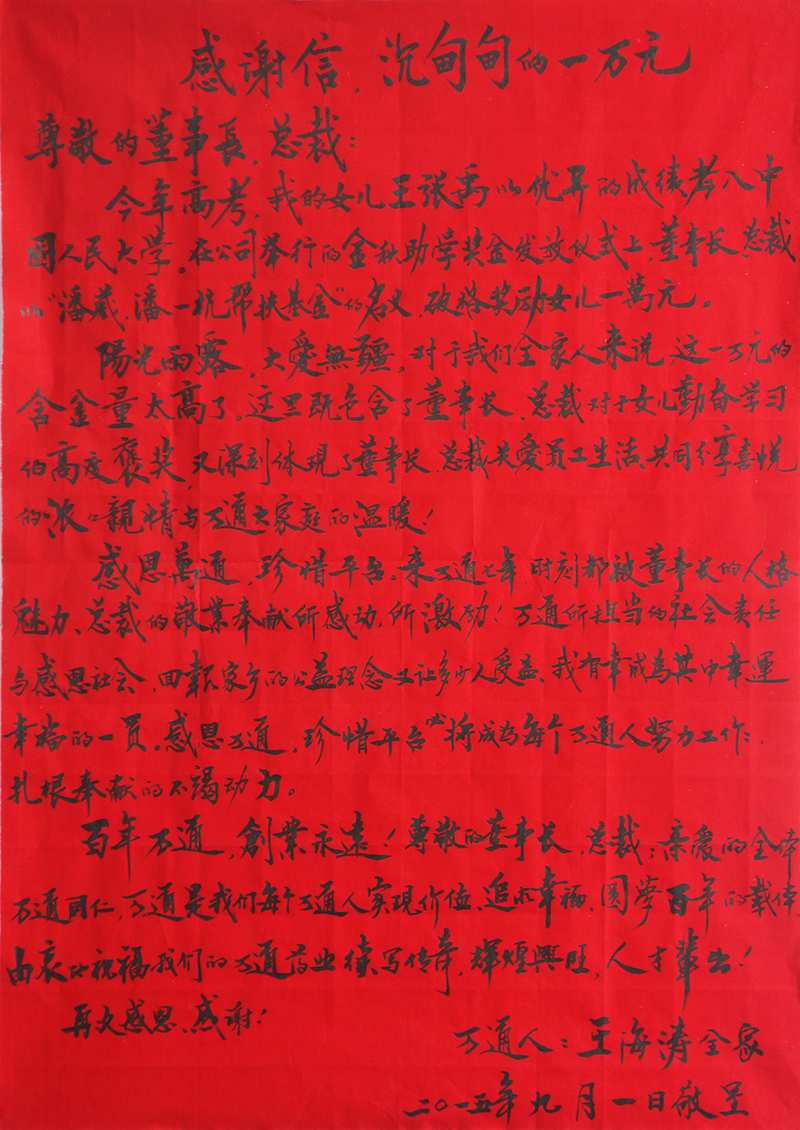 感谢信，沉甸甸的一万元
尊敬的董事長、总裁：
今年高考，我的女儿王张禹以优异的成绩考入中
國人民大学。在公司举行的金秋助学奖金发放仪式上，董事长、总裁
以“潘葳、潘一杭帮扶基金”的名义，破格奖励女儿一萬元。
陽光雨露，大愛無疆，对于我们全家人来说，这一万元的
含金量太高了。这里既包含了董事长、总裁对于女儿勤奋学习
的高度褒奖，又深刻体現了董事长、总裁关爱員工生活、共同分享喜悦
的浓浓親情与万通大家庭的温暖！
感恩萬通，珍惜平台。来万通七年，时刻都被董事长的人格
魅力、总裁的敬業奉献所感动，所激励！万通所担当的社会责任
与感恩社会、回報家乡的公益理念又让多少人受益、我有幸成為其中幸運
幸福的一员。感恩万通，珍惜平台必将成为每个万通人努力工作、
扎根奉献的不竭动力。
百年万通，創業永远！尊敬的董事长、总裁；亲爱的全体
万通同仁，万通是我们每个万通人实現价值、追求幸福、圆梦百年的载体，
由衷地祝福我们的万通药业续写传奇，輝煌興旺，人才輩出！
再次感恩、感谢！
万通人：王海涛全家
二〇一五年九月一日敬呈